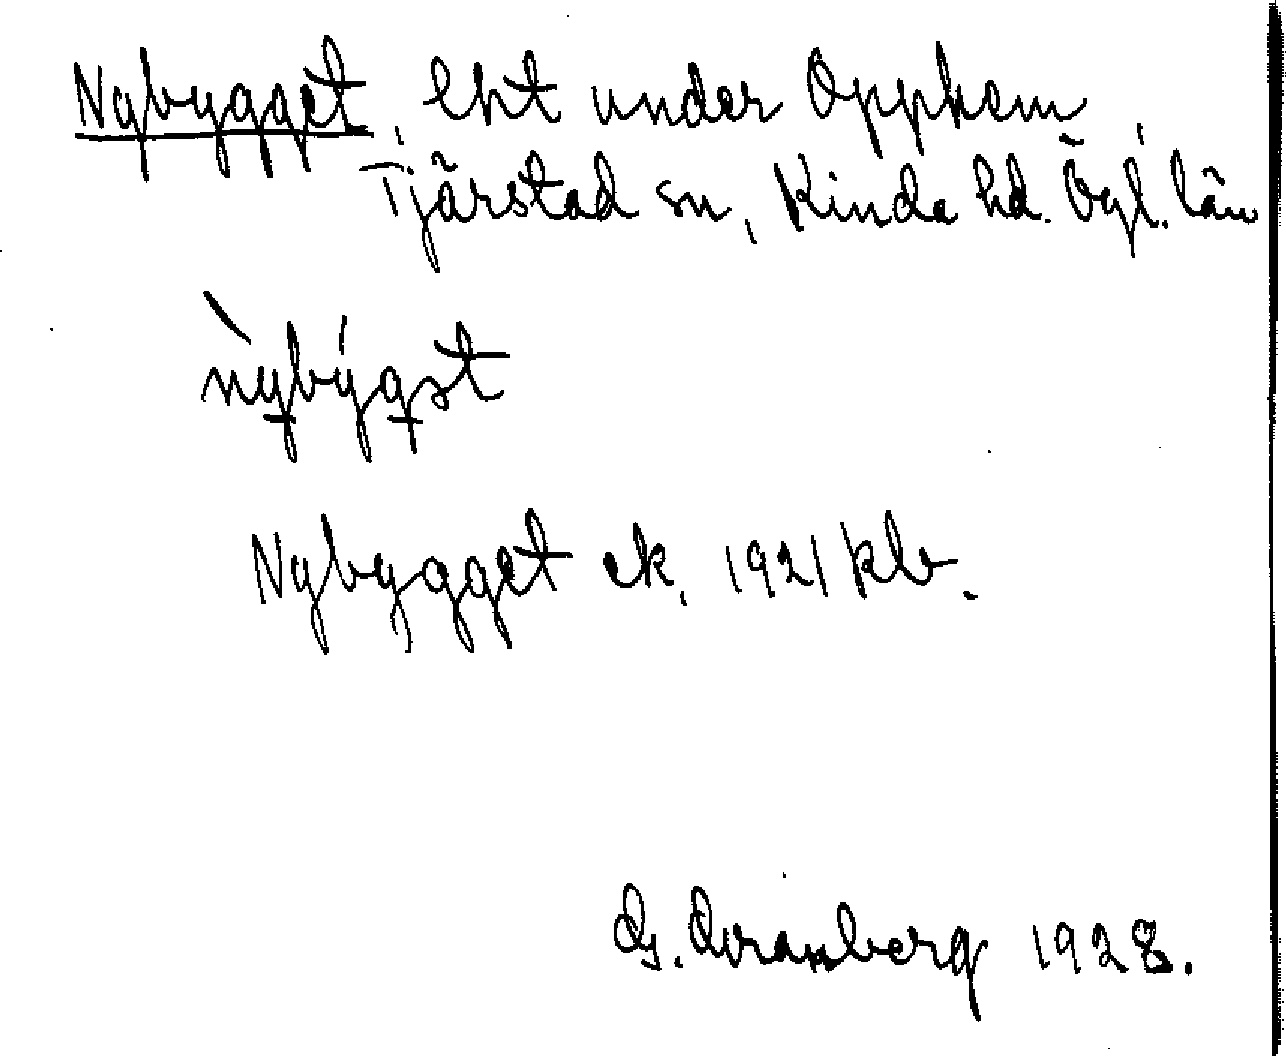 Nybygget, lht under Opphem
Tjärstad sn, Kinda hd. Ögl. län
nybygget ek. 1921 klv.
G. 1928.